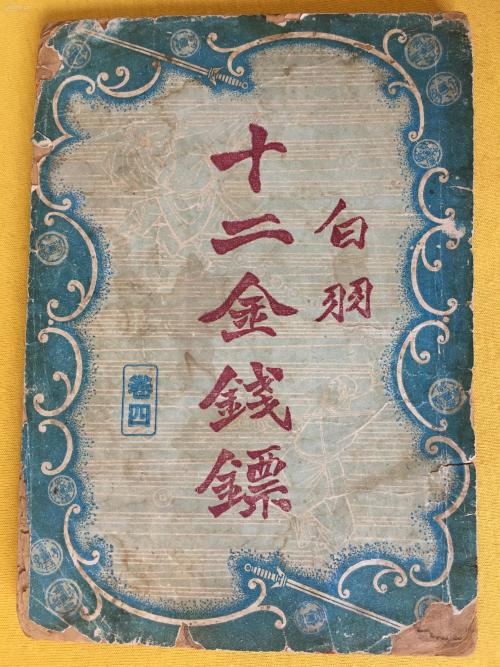 白羽
十二金錢鏢
卷四